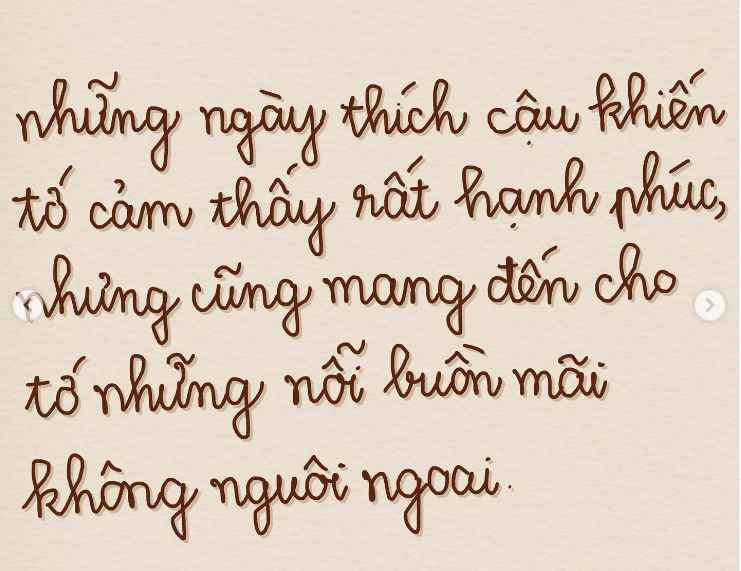 những ngày thích cậu khiến
tớ cảm thấy rất hạnh phúc,
nhưng cũng mang đến cho
tớ những nỗi buồn mãi
không nguôi ngoai.